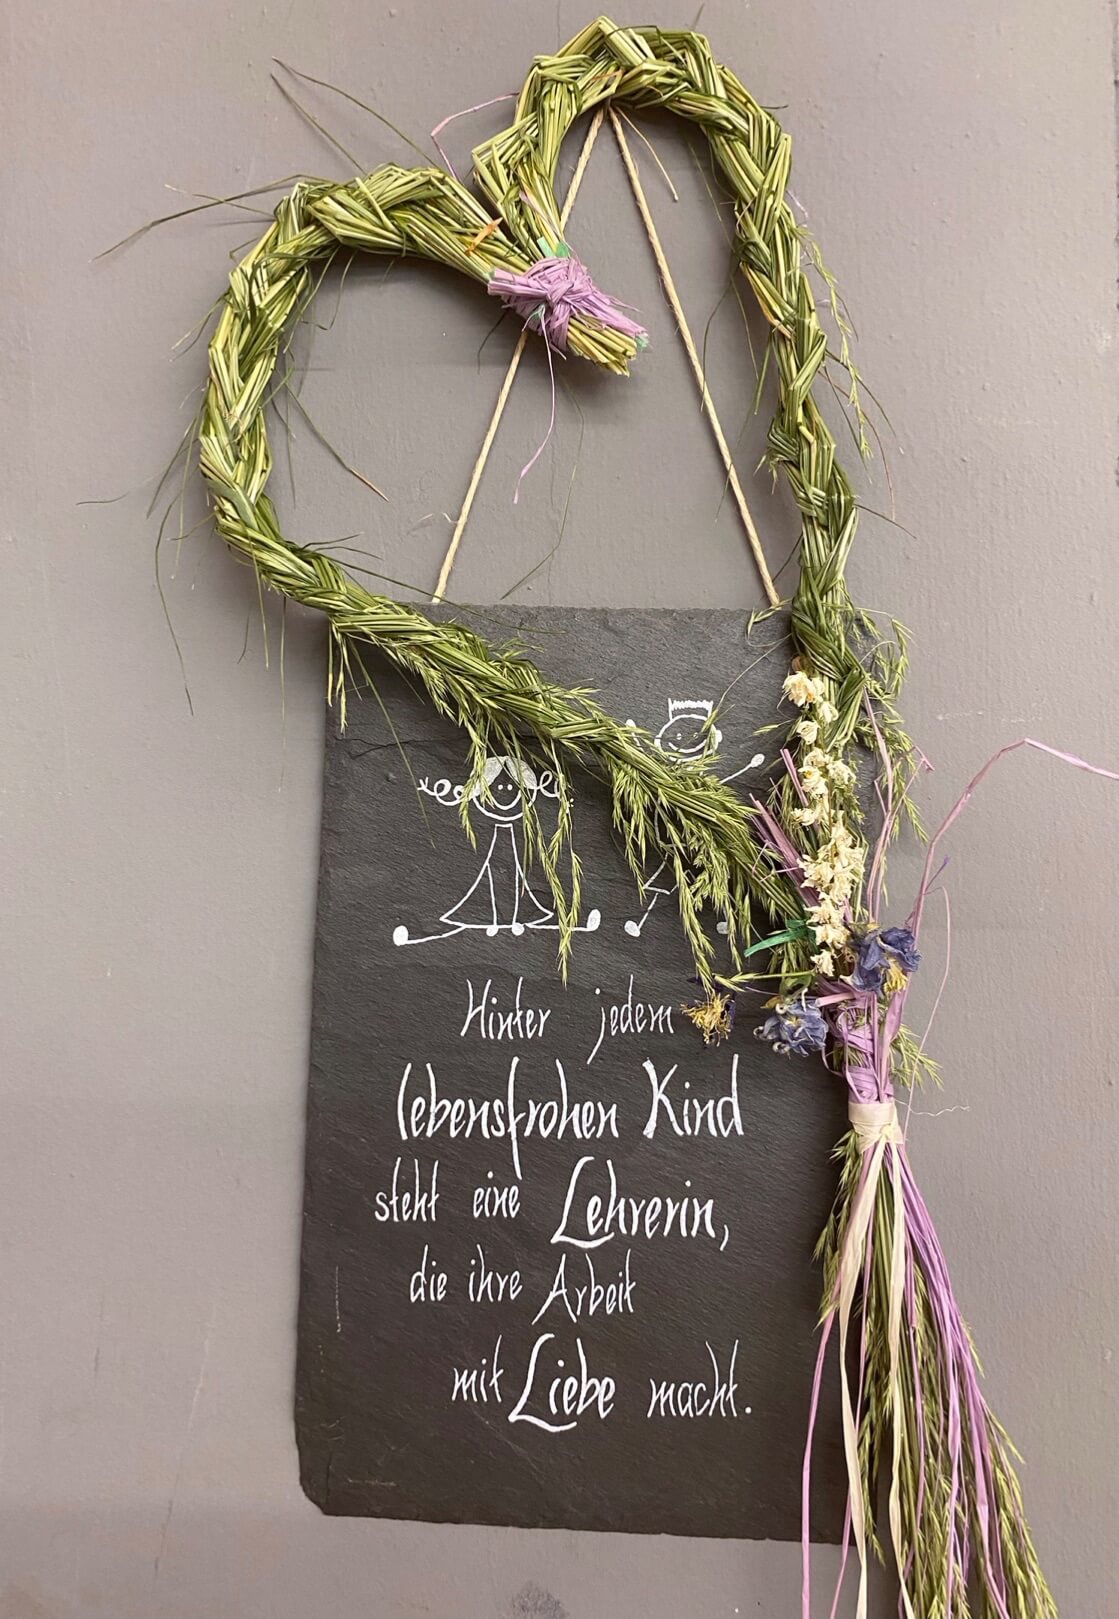 Hinter jedem
lebensfrohen Kind
steht eine Lehrerin,
die ihre Arbeit
mit Liebe macht.